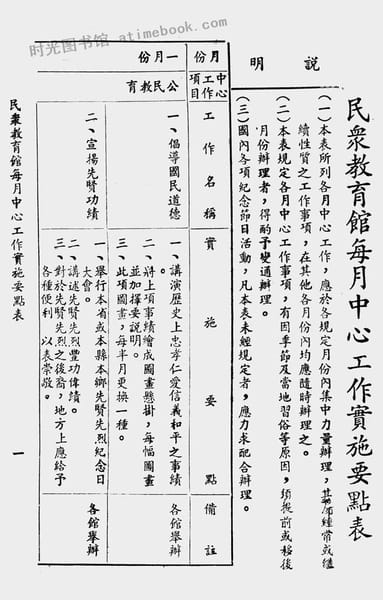 民衆教育館每月中心工作實施要點表
說明
(一)本表所列各月中心工作，應於各規定月份內集中力量辦理，其餘經常或繼
續性質之工作事項，在其他各月份內均應隨時辦理之。
(二)本表規定各月中心工作事項，有因季節及當地習俗等原因，須提前或移後
月份辦理者，得酌予變通辦理。
(三)國內各項紀念節日活動，凡本表未經規定者，應力求配合辦理。
月份
中心工作項目
工作名稱
實施要點
備註
一月份
公民教育
一、倡導國民道德
一、講演歷史上忠孝仁愛信義和平之事績
二、將上項事績繪成圖畫懸掛，每幅圖畫
並加擇要說明。
三、此項圖畫，每半月更換一種。
各館舉辦
二、宣揚先賢功績
一、舉行本省或本縣本鄉先賢先烈紀念日
大會。
二、講述先賢先烈豐功偉績。
三、對於先賢先烈之後裔，地方上應給予
各種便利，以表崇敬。
各館舉辦
民衆教育館每月中心工作實施要點表
一
时光图书馆 atimebook.com